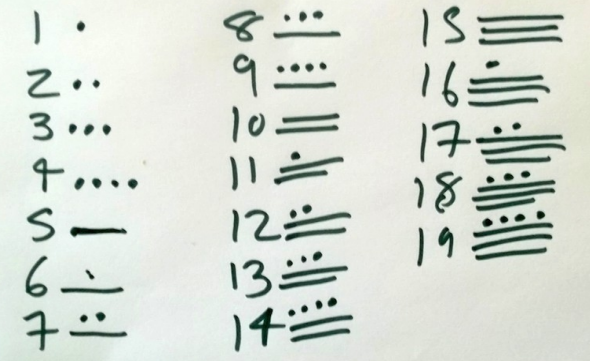 1 𝋡
2 𝋢
3 𝋣
4 𝋤
5 𝋥
6 𝋦
7 𝋧
8 𝋨
9 𝋩
10 𝋪
11 𝋫
12 𝋬
13 𝋭
14 𝋮
15 𝋯
16 𝋰
17 𝋱
18 𝋲
19 𝋳